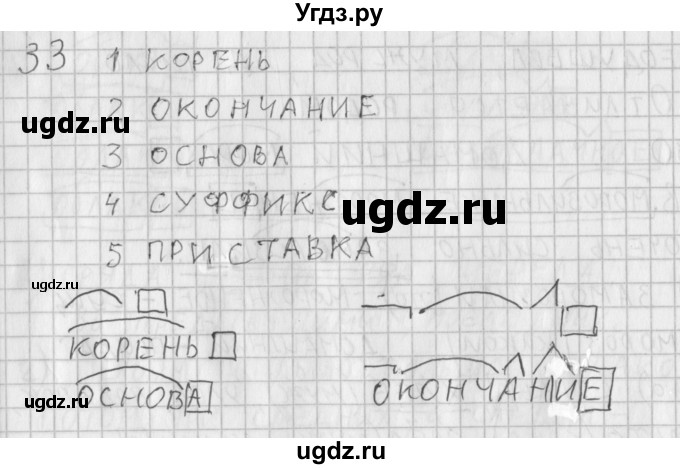 Угдз.ру
33 1 КОРЕНЬ
2 ОКОНЧАНИЕ
ugdz.ru
3 ОСНОВА
4 СУФФИКС
ugdz.ru
5 ПРИСТАВКА
ugdz.ru
КОРЕНЬ
ugdz.ru
ОСНОВА
ОКОНЧАНИЕ
ugdz.ru
ugdz.ru
ugdz.ru